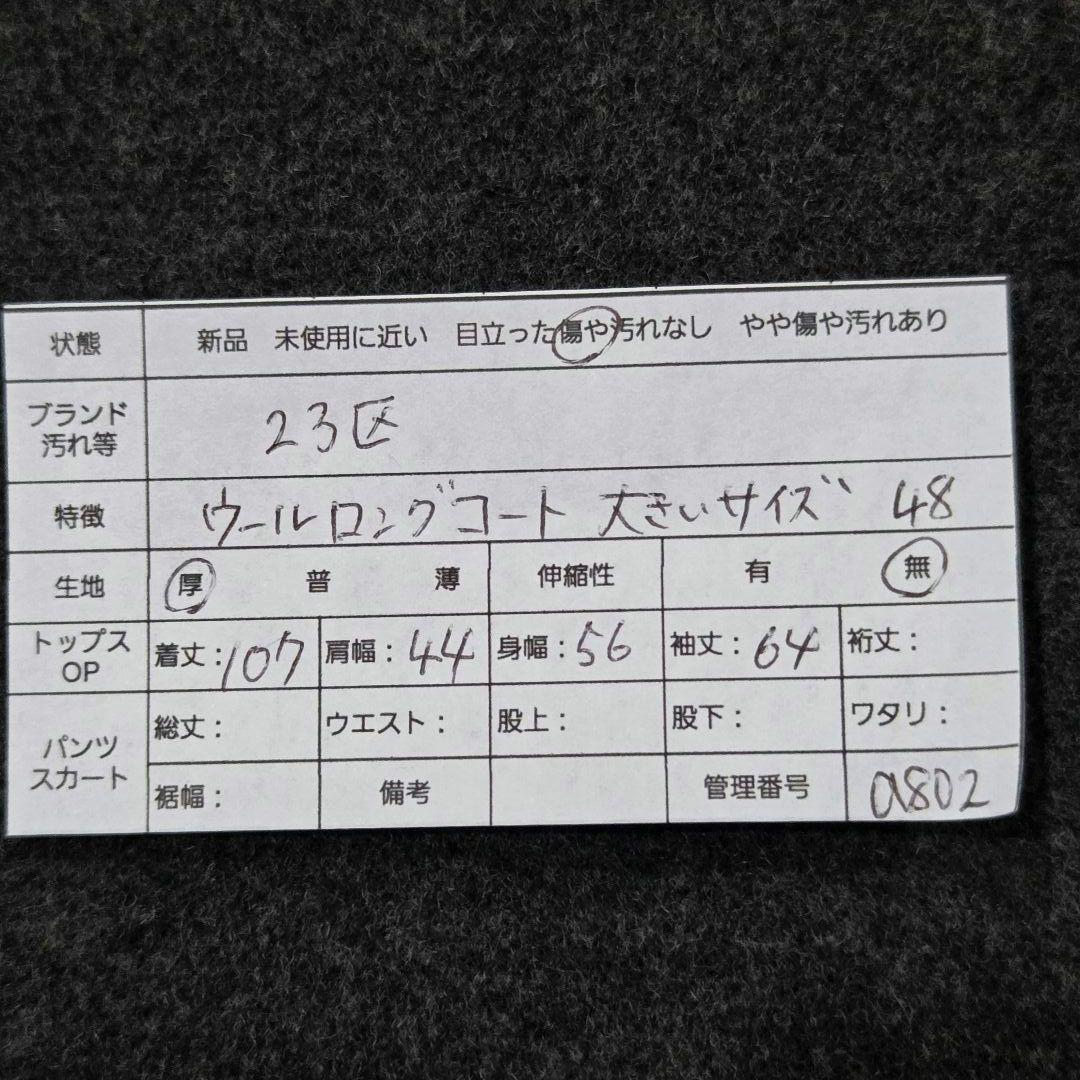 状態 新品 未使用に近い 目立った傷や汚れなし やや傷や汚れあり
ブランド
汚れ等
23区
特徴 ウールロングコート 大きいサイズ 48
生地 厚 普 薄 伸縮性 有 無
トップス
OP
着丈：107 肩幅：44 身幅：56 袖丈：64 裄丈：
パンツ
スカート
総丈： ウエスト： 股上： 股下： ワタリ：
裾幅： 備考 管理番号 a802